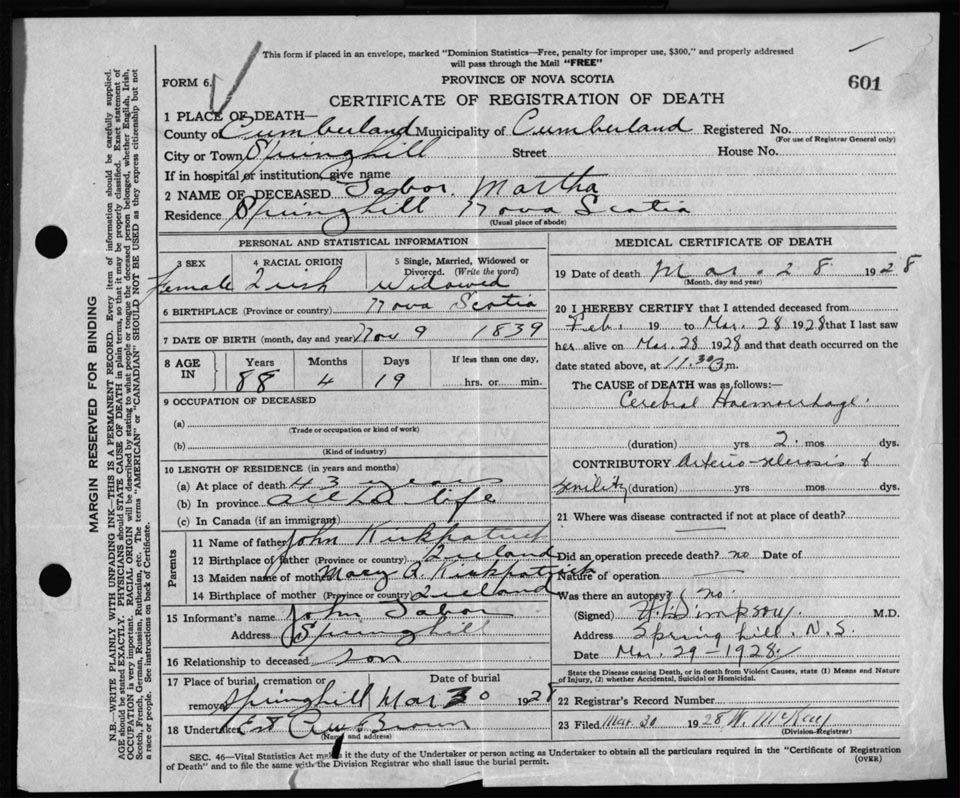 This form if placed in an envelope, marked "Dominion Statistics—Free, penalty for improper use, $300," and properly addressed
will pass through the Mail "FREE"
FORM 6.
PROVINCE OF NOVA SCOTIA
601
CERTIFICATE OF REGISTRATION OF DEATH
1 PLACE OF DEATH—
County of Cumberland Municipality of Cumberland Registered No.
(For use of Registrar General only)
City or Town Springhill Street House No.
If in hospital or institution, give name
2 NAME OF DECEASED Tabor. Martha
Residence Springhill Nova Scotia
(Usual place of abode)
PERSONAL AND STATISTICAL INFORMATION
3 SEX 4 RACIAL ORIGIN 5 Single, Married, Widowed or
Divorced. (Write the word)
Female Irish Widowed
6 BIRTHPLACE (Province or country) Nova Scotia
7 DATE OF BIRTH (month, day and year) Nov 9 1839
8 AGE IN Years Months Days If less than one day,
88 4 19 hrs. or min.
9 OCCUPATION OF DECEASED
(a)
(Trade or occupation or kind of work)
(b)
(Kind of industry)
10 LENGTH OF RESIDENCE (in years and months)
(a) At place of death 43 years
(b) In province all her life
(c) In Canada (if an immigrant)
Parents
11 Name of father John Kirkpatrick
12 Birthplace of father (Province or country) Ireland
13 Maiden name of mother Mary A. Kirkpatrick
14 Birthplace of mother (Province or country) Ireland
15 Informant's name John Tabor
Address Springhill
16 Relationship to deceased son
17 Place of burial, cremation or Date of burial
removal Springhill Mar 30 1928
18 Undertaker Brown
(Name and address)
MEDICAL CERTIFICATE OF DEATH
19 Date of death Mar. 28 1928
(Month, day and year)
20 I HEREBY CERTIFY that I attended deceased from
Feb. 19 to Mar. 28 1928 that I last saw
her alive on Mar. 28 1928 and that death occurred on
date stated above, at 11.30 m.
The CAUSE of DEATH was as follows:—
Cerebral Haemorrhage.
(duration) yrs 2. mos dys.
CONTRIBUTORY Arterio-sclerosis &
senility (duration) yrs mos dys.
21 Where was disease contracted if not at place of death?
Did an operation precede death? no Date of
Nature of operation
Was there an autopsy? no.
(Signed) Simpson M.D.
Address Spring hill. N.S.
Date Mar. 29—1928.
State the Disease causing Death, or in death from Violent Causes, state (1) Means and Nature
of Injury, (2) whether Accidental, Suicidal or Homicidal.
22 Registrar's Record Number
23 Filed Mar. 30 1928 W. McKay
(Division Registrar)
SEC. 46—Vital Statistics Act makes it the duty of the Undertaker or person acting as Undertaker to obtain all the particulars required in the "Certificate of Registration
of Death" and to file the same with the Division Registrar who shall issue the burial permit.
(OVER)
MARGIN RESERVED FOR BINDING
N.B.—WRITE PLAINLY WITH UNFADING INK—THIS IS A PERMANENT RECORD. Every item of information should be carefully supplied.
AGE should be stated EXACTLY. PHYSICIANS should STATE CAUSE OF DEATH in plain terms, so that it may be properly classified. Exact statement of
OCCUPATION is very important. RACIAL ORIGIN will be described by stating to what people or tongue the deceased person belonged, whether English, Irish,
Scotch, French, German, Russian, Ruthenian, etc. The terms "AMERICAN" or "CANADIAN" SHOULD NOT BE USED as they express citizenship but not
a race or people. See instructions on back of Certificate.